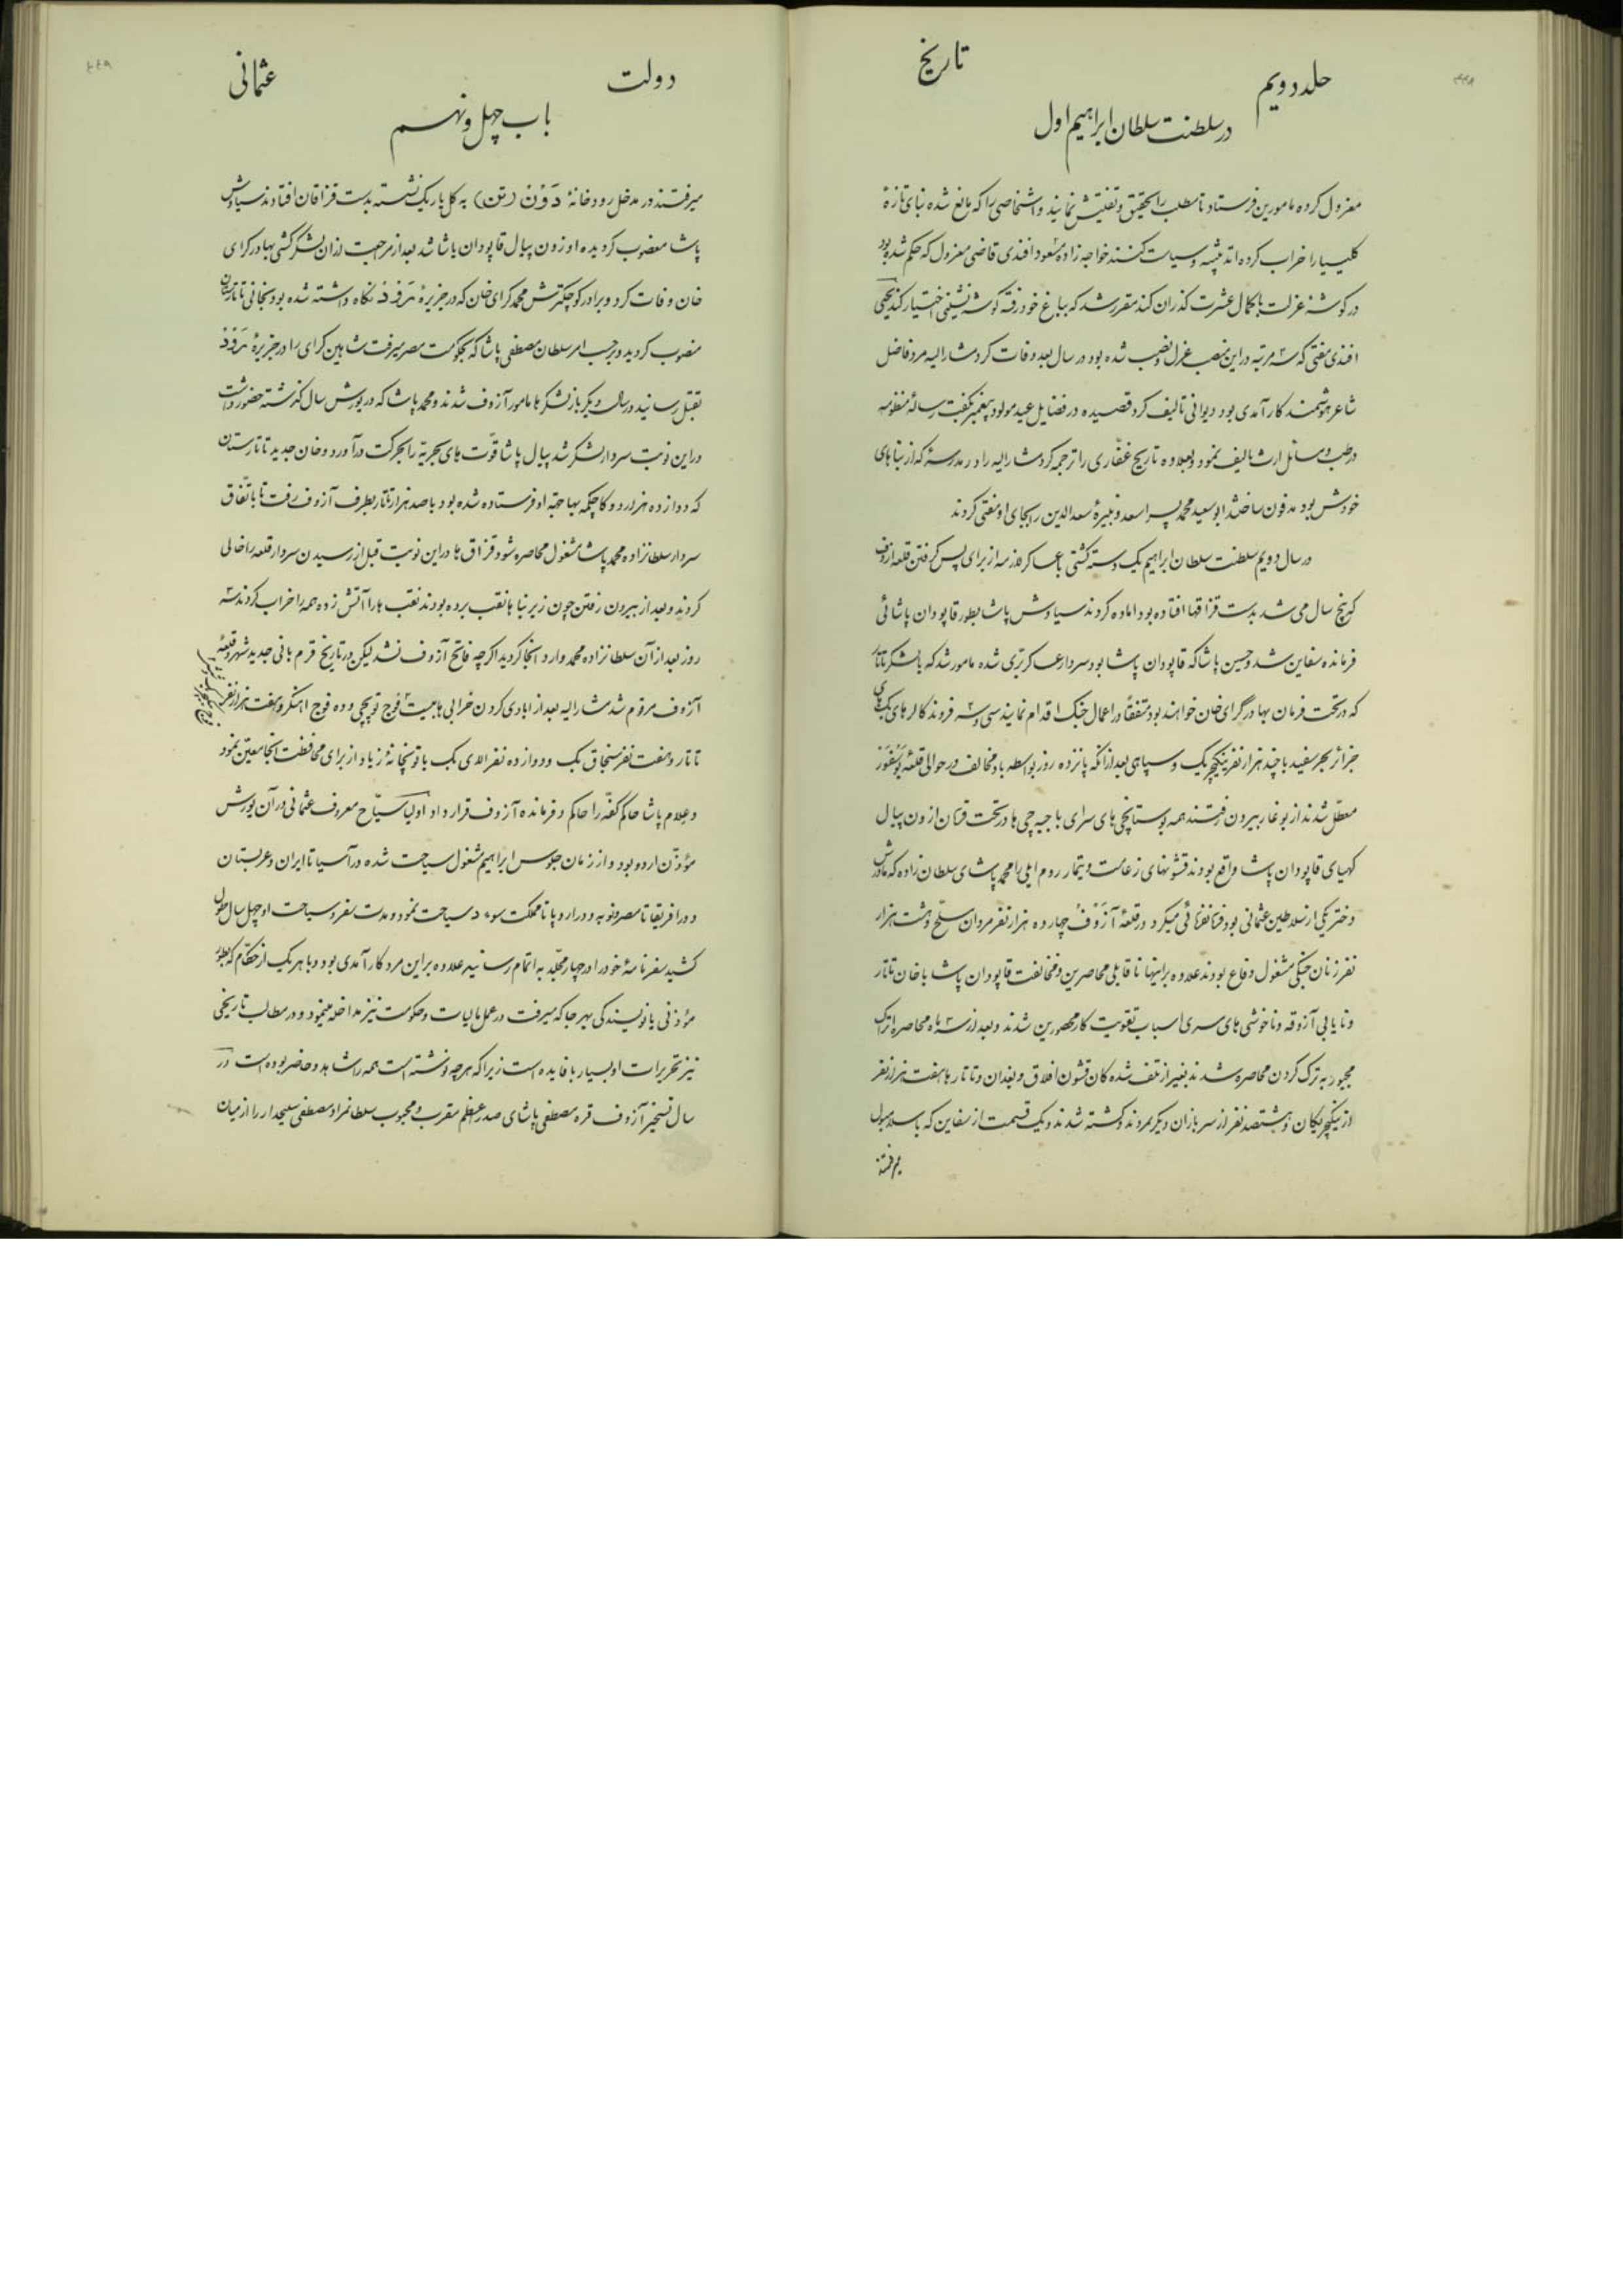 ۴۴۸
جلد دویم
تاریخ
در سلطنت سلطان ابراهیم اول
معزول کرده مامورین فرستاد تا مطلب را تحقیق و تفتیش نمایند و اشخاصی را که مانع شده بنای تازهٔ
کلیسیا را خراب کرده‌اند تنبیه و سیاست کنند خواجه زاده مسعود افندی قاضی معزول که حکم شده بود
در گوشهٔ عزلت با کمال عشرت گذران کند مقرر شد که بباغ خود رفته گوشه نشینی اختیار کند یحیی
افندی مفتی که سه مرتبه در این منصب عزل و نصب شده بود در سال بعد وفات کرد مشارالیه مرد فاضل
شاعر هوشمند کارآمدی بود دیوانی تالیف کرد قصیده در فضایل عید مولود پیغمبر بگفت رسالهٔ منظومه
در طب و مسائل ارث تالیف نمود و بعلاوه تاریخ غفّاری را ترجمه کرد مشارالیه را در مدرسهٔ که از بناهای
خودش بود مدفون ساختند ابو سعید محمد پسر اسعد و نبیرهٔ سعدالدین را بجای او مفتی کردند
در سال دویم سلطنت سلطان ابراهیم یک دسته کشتی با عساکر لازمه از برای پس گرفتن قلعه ازوف
که پنج سال می شد بدست قزاقها افتاده بود اماده کردند سیاوش پاشا بطور قاپودان پاشائی
فرمانده سفاین شد و حسین پاشا که قاپودان پاشا بود سردار عسکر برّی شده مامور شد که با لشکر تاتار
که در تحت فرمان بهادر گرای خان خواهند بود متفقاً در اعمال جنک اقدام نمایند سی و سه فروند کالرهای بک
جزائر بحر سفید با چند هزار نفر ینکیچریک و سپاهی بعد از انکه پانزده روز بواسطه باد مخالف در حوالی قلعهٔ بوسفور
معطّل شدند از بوغاز بیرون رفتند همه بوستانچی های سرای با جبه چی ها در تحت فرمان ازون پیال
کهیای قاپودان پاشا واقع بودند قشونهای زعامت و تیمار روم ایلی را محمد پاشای سلطان زاده که مادرش
دختر یکی از سلاطین عثمانی بود فرمانفرمائی میکرد در قلعهٔ آزَوْف چهارده هزار نفر مردان مسلّح و هشت هزار
نفر زنان جنکی مشغول دفاع بودند علاوه بر اینها ناقابلی محاصرین و مخالفت قاپودان پاشا با خان تاتار
و نایابی آزوقه و ناخوشی های مسری اسباب تقویت کار محصورین شدند و بعد از سه ماه محاصره اتراک
مجبور به ترک کردن محاصره شدند بغیر از تلف شده کان قشون افلاق و بغدان و تاتارها هفت هزار نفر
از ینکچریکان و هشتصد نفر از سربازان دیکر مردند و کشته شدند و یک قسمت از سفاین که باسلامبول
میرفتند
۴۴۹
دولت
عثمانی
باب چهل و نهم
میرفتند در مدخل رودخانهٔ دَوْن (تن) به کل باریک نشسته بدست قزاقان افتادند سیاوش
پاشا مغضوب کردیده اوزون پیال قاپودان پاشا شد بعد از مراجعت از ان لشکرکشی بهادر کرای
خان وفات کرد و برادر کوچکترش محمد کرای خان که در جزیرهٔ رَودُس نکاه داشته شده بود بخانی تاتارستان
منصوب کردید و برحسب امر سلطان مصطفی پاشا که بحکومت مصر میرفت شاهین کرای را در جزیرهٔ رَودُس
بقتل رسانید در سال دیکر باز لشکرها مامور آزوف شدند و محمد پاشا که در یورش سال کذشته حضور داشت
در این نوبت سردار لشکر شد پیال پاشا قوّت های بحریّه را بحرکت درآورد و خان جدید تاتارستان
که دوازده هزار دوکا چکمه بها جهة او فرستاده شده بود با صد هزار تاتار بطرف آزوف رفت تا باتّفاق
سردار سلطانزاده محمد پاشا مشغول محاصره شود قزاق ها در این نوبت قبل از رسیدن سردار قلعه را خالی
کردند و بعد از بیرون رفتن چون زیر بناها نقب برده بودند نقب ها را آتش زده همه را خراب کردند سه
روز بعد از آن سلطانزاده محمد وارد انجا کردید اکرچه فاتح آزوف نشد لیکن در تاریخ قرم بانی جدید شهر و قلعهٔ
آزوف مرقوم شد مشارالیه بعد از ابادی کردن خرابی ها بیست فوج توپچی و ده فوج اهنکر و هفت هزار نفر
تاتار و هفت نفر سنجاق بک و دوازده نفر الای بک با توپخانهٔ زیاد از برای محافظت انجا معیّن نمود
و علام پاشا حاکم کفّه را حاکم و فرمانده آزوف قرار داد اولیا سیّاح معروف عثمانی در آن یورش
مؤذّن اردو بود و از زمان جلوس ابراهیم مشغول سیاحت شده در آسیا تا ایران و عربستان
و در افریقا تا مصر و نوبه و در اروپا تا مملکت سوءد سیاحت نمود و مدت سفر و سیاحت او چهل سال طول
کشید سفرنامهٔ خود را در چهار مجلّد به اتمام رسانید علاوه بر این مرد کارآمدی بود و با هر یک از حکّام که بطور
مؤذنی یا نویسندکی بهر جا که میرفت در عمل مالیات و حکومت نیز مداخله مینمود و در مطالب تاریخی
نیز تحریرات او بسیار با فایده است زیرا که هرچه نوشته است همه را شاهد و حاضر بوده است در
سال تسخیر آزوف قره مصطفی پاشای صدر اعظم مقرب و محبوب سلطانمراد مصطفی سلیحدار را از میان